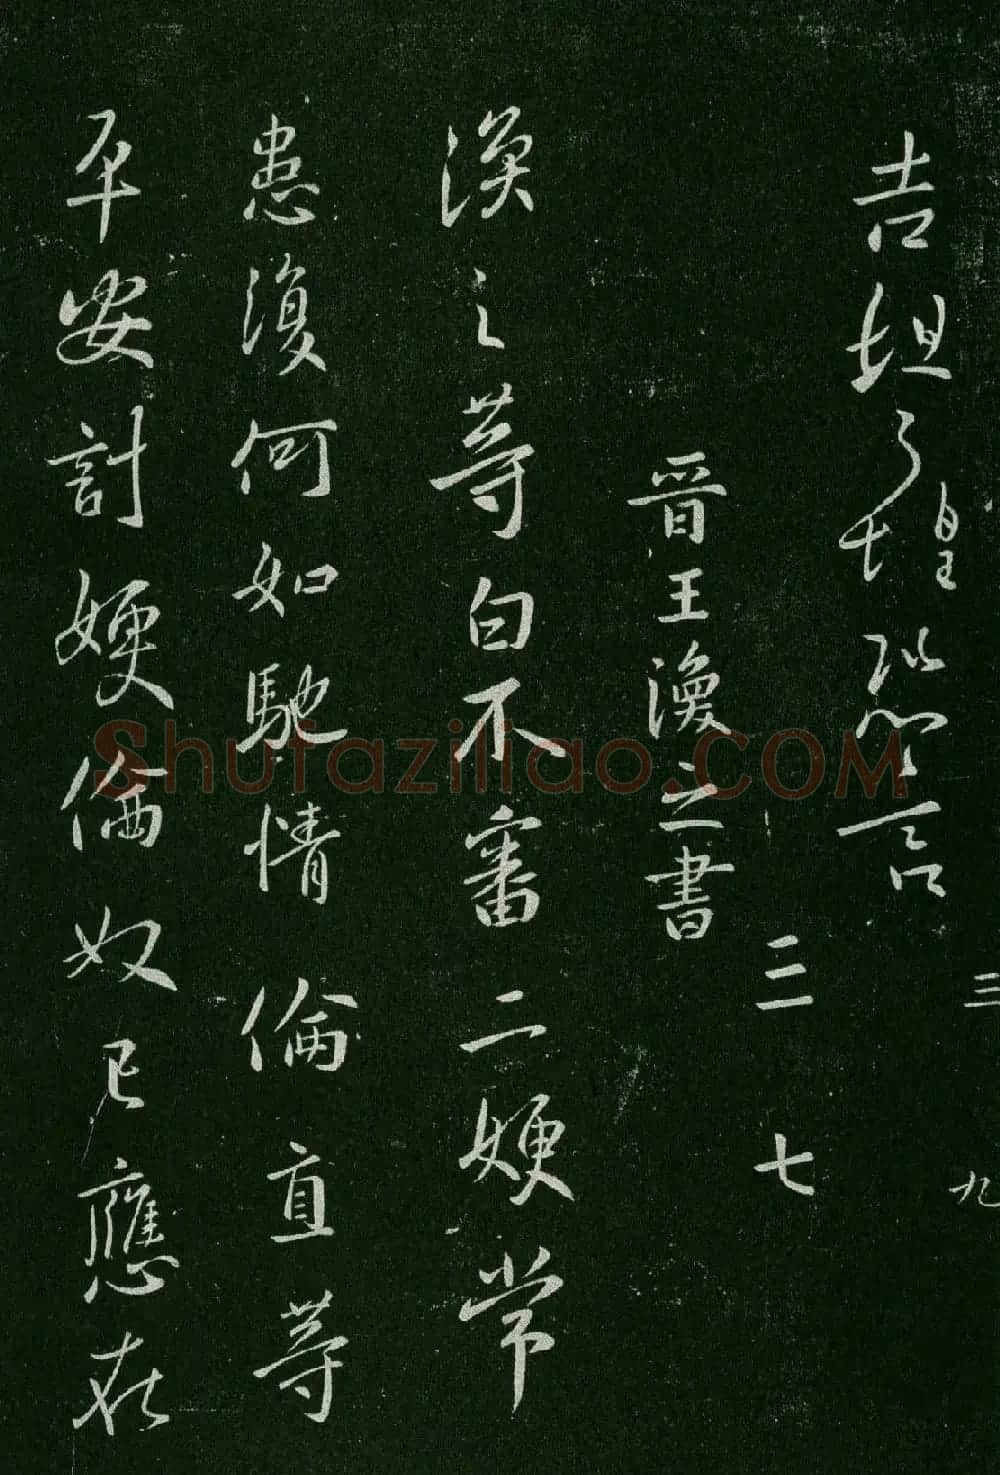 吉坦之惶恐言
三 九
三 七
晉王渙之書
渙之等白不審二嫂常
患復何如馳情倫直等
平安計嫂倫奴已應在
Shufaziliao.COM